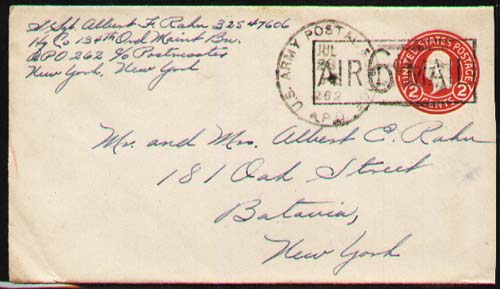 S/Sgt. Albert F. Rahn 32547606
Hq Co 13th Ord Maint Bn.
APO 262 c/o Postmaster
New York, New York
U.S. ARMY POSTAL
JUL
262
A.P.O.
AIR 6¢ MAIL
UNITED STATES POSTAGE
2 CENTS 2
Mr. and Mrs. Albert C. Rahn
181 Oak Street
Batavia,
New York